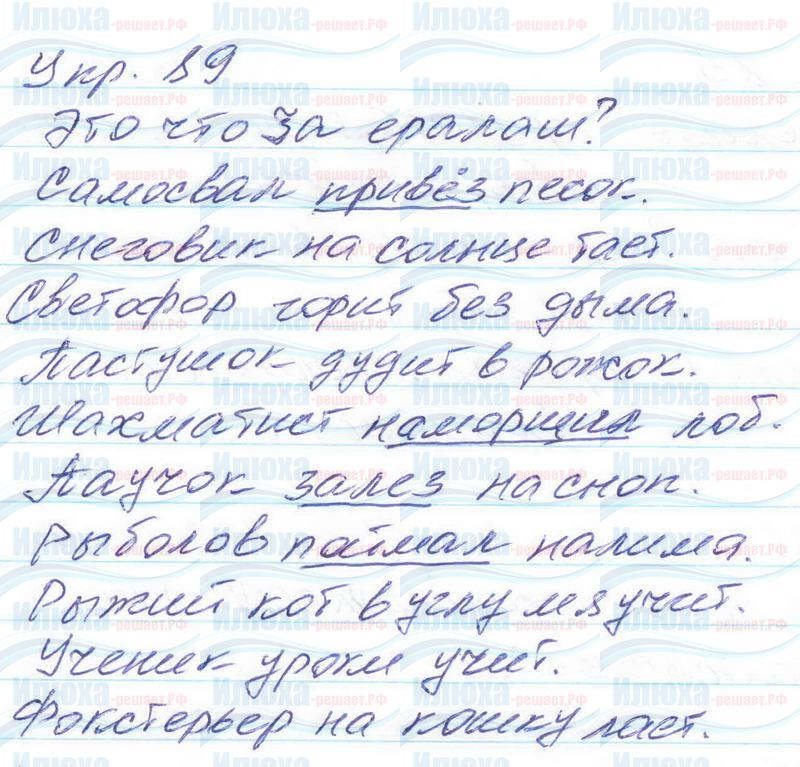 Упр. 89
Это что за ералаш?
Самосвал привёз песок.
Снеговик на солнце тает.
Светофор горит без дыма.
Пастушок дудит в рожок.
Шахматист наморщил лоб.
Паучок залез на сноп.
Рыболов поймал налима.
Рыжий кот в углу мяучит.
Ученик уроки учит.
Фокстерьер на кошку лает.